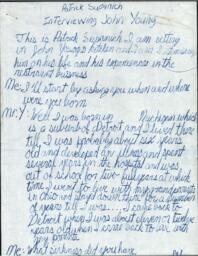 Patrick Supanich
Interviewing John Young
This is Patrick Supanich I am setting
in John Youngs kitchen and I am interviewing
him on his life and his experiences in the
restaurant business
Me: I'll start by asking you when and where
were you born
Mr. Y: Well I was born in Michigan which
is a suburb of Detroit and I lived there
till I was probably about six years
old and developed an illness and spent
several years in the hospital and was
out of school for two full years at which
time I went to live with my grandparents
in Ohio and stayed down there for a number
of years till I was.... I came back to
Detroit when I was about eleven or twelve
years old when I came back to live with
my parents.
Me: What sickness did you have